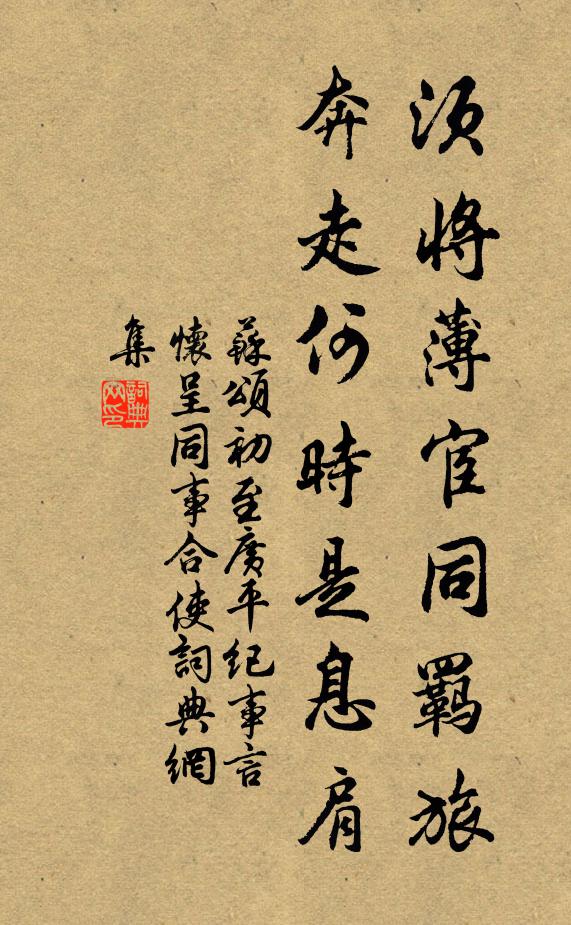 須將薄宦同羈旅
奔走何時是息肩
蘇頌初至廣平紀事言
懷呈同事合使詞典網
集
詞典
网印